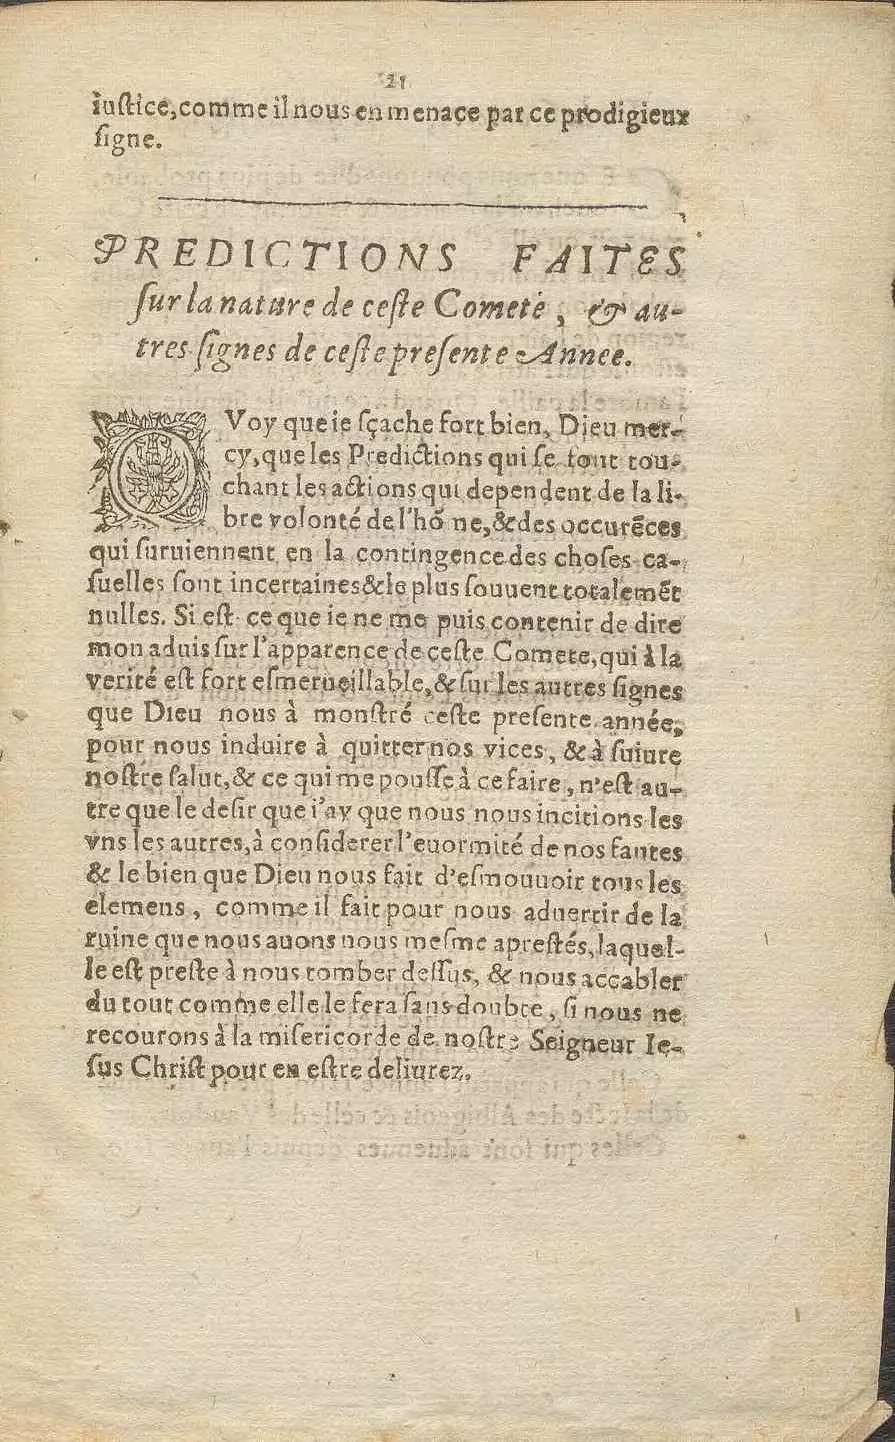 21
iustice, comme il nous en menace par ce prodigieux
signe.
PREDICTIONS FAITES
sur la nature de ceste Comete, & au-
tres signes de ceste presente Annee.
QVoy que ie sçache fort bien, Dieu mer-
cy, que les Predictions qui se font tou-
chant les actions qui dependent de la li-
bre volonté de l'hõ ne, & des occurẽces
qui suruiennent en la contingence des choses ca-
suelles sont incertaines & le plus souuent totalemẽt
nulles. Si est ce que ie ne me puis contenir de dire
mon aduis sur l'apparence de ceste Comete, qui à la
verité est fort esmerueillable, & sur les autres signes
que Dieu nous à monstré ceste presente année,
pour nous induire à quitter nos vices, & à suiure
nostre salut, & ce qui me pousse à ce faire, n'est au-
tre que le desir que i'ay que nous nous incitions les
vns les autres, à considerer l'euormité de nos fautes
& le bien que Dieu nous fait d'esmouuoir tous les
elemens, comme il fait pour nous aduertir de la
ruine que nous auons nous mesme aprestés, laquel-
le est preste à nous tomber dessus, & nous accabler
du tout comme elle le fera sans doubte, si nous ne
recourons à la misericorde de nostre Seigneur Ie-
sus Christ pour en estre deliurez.